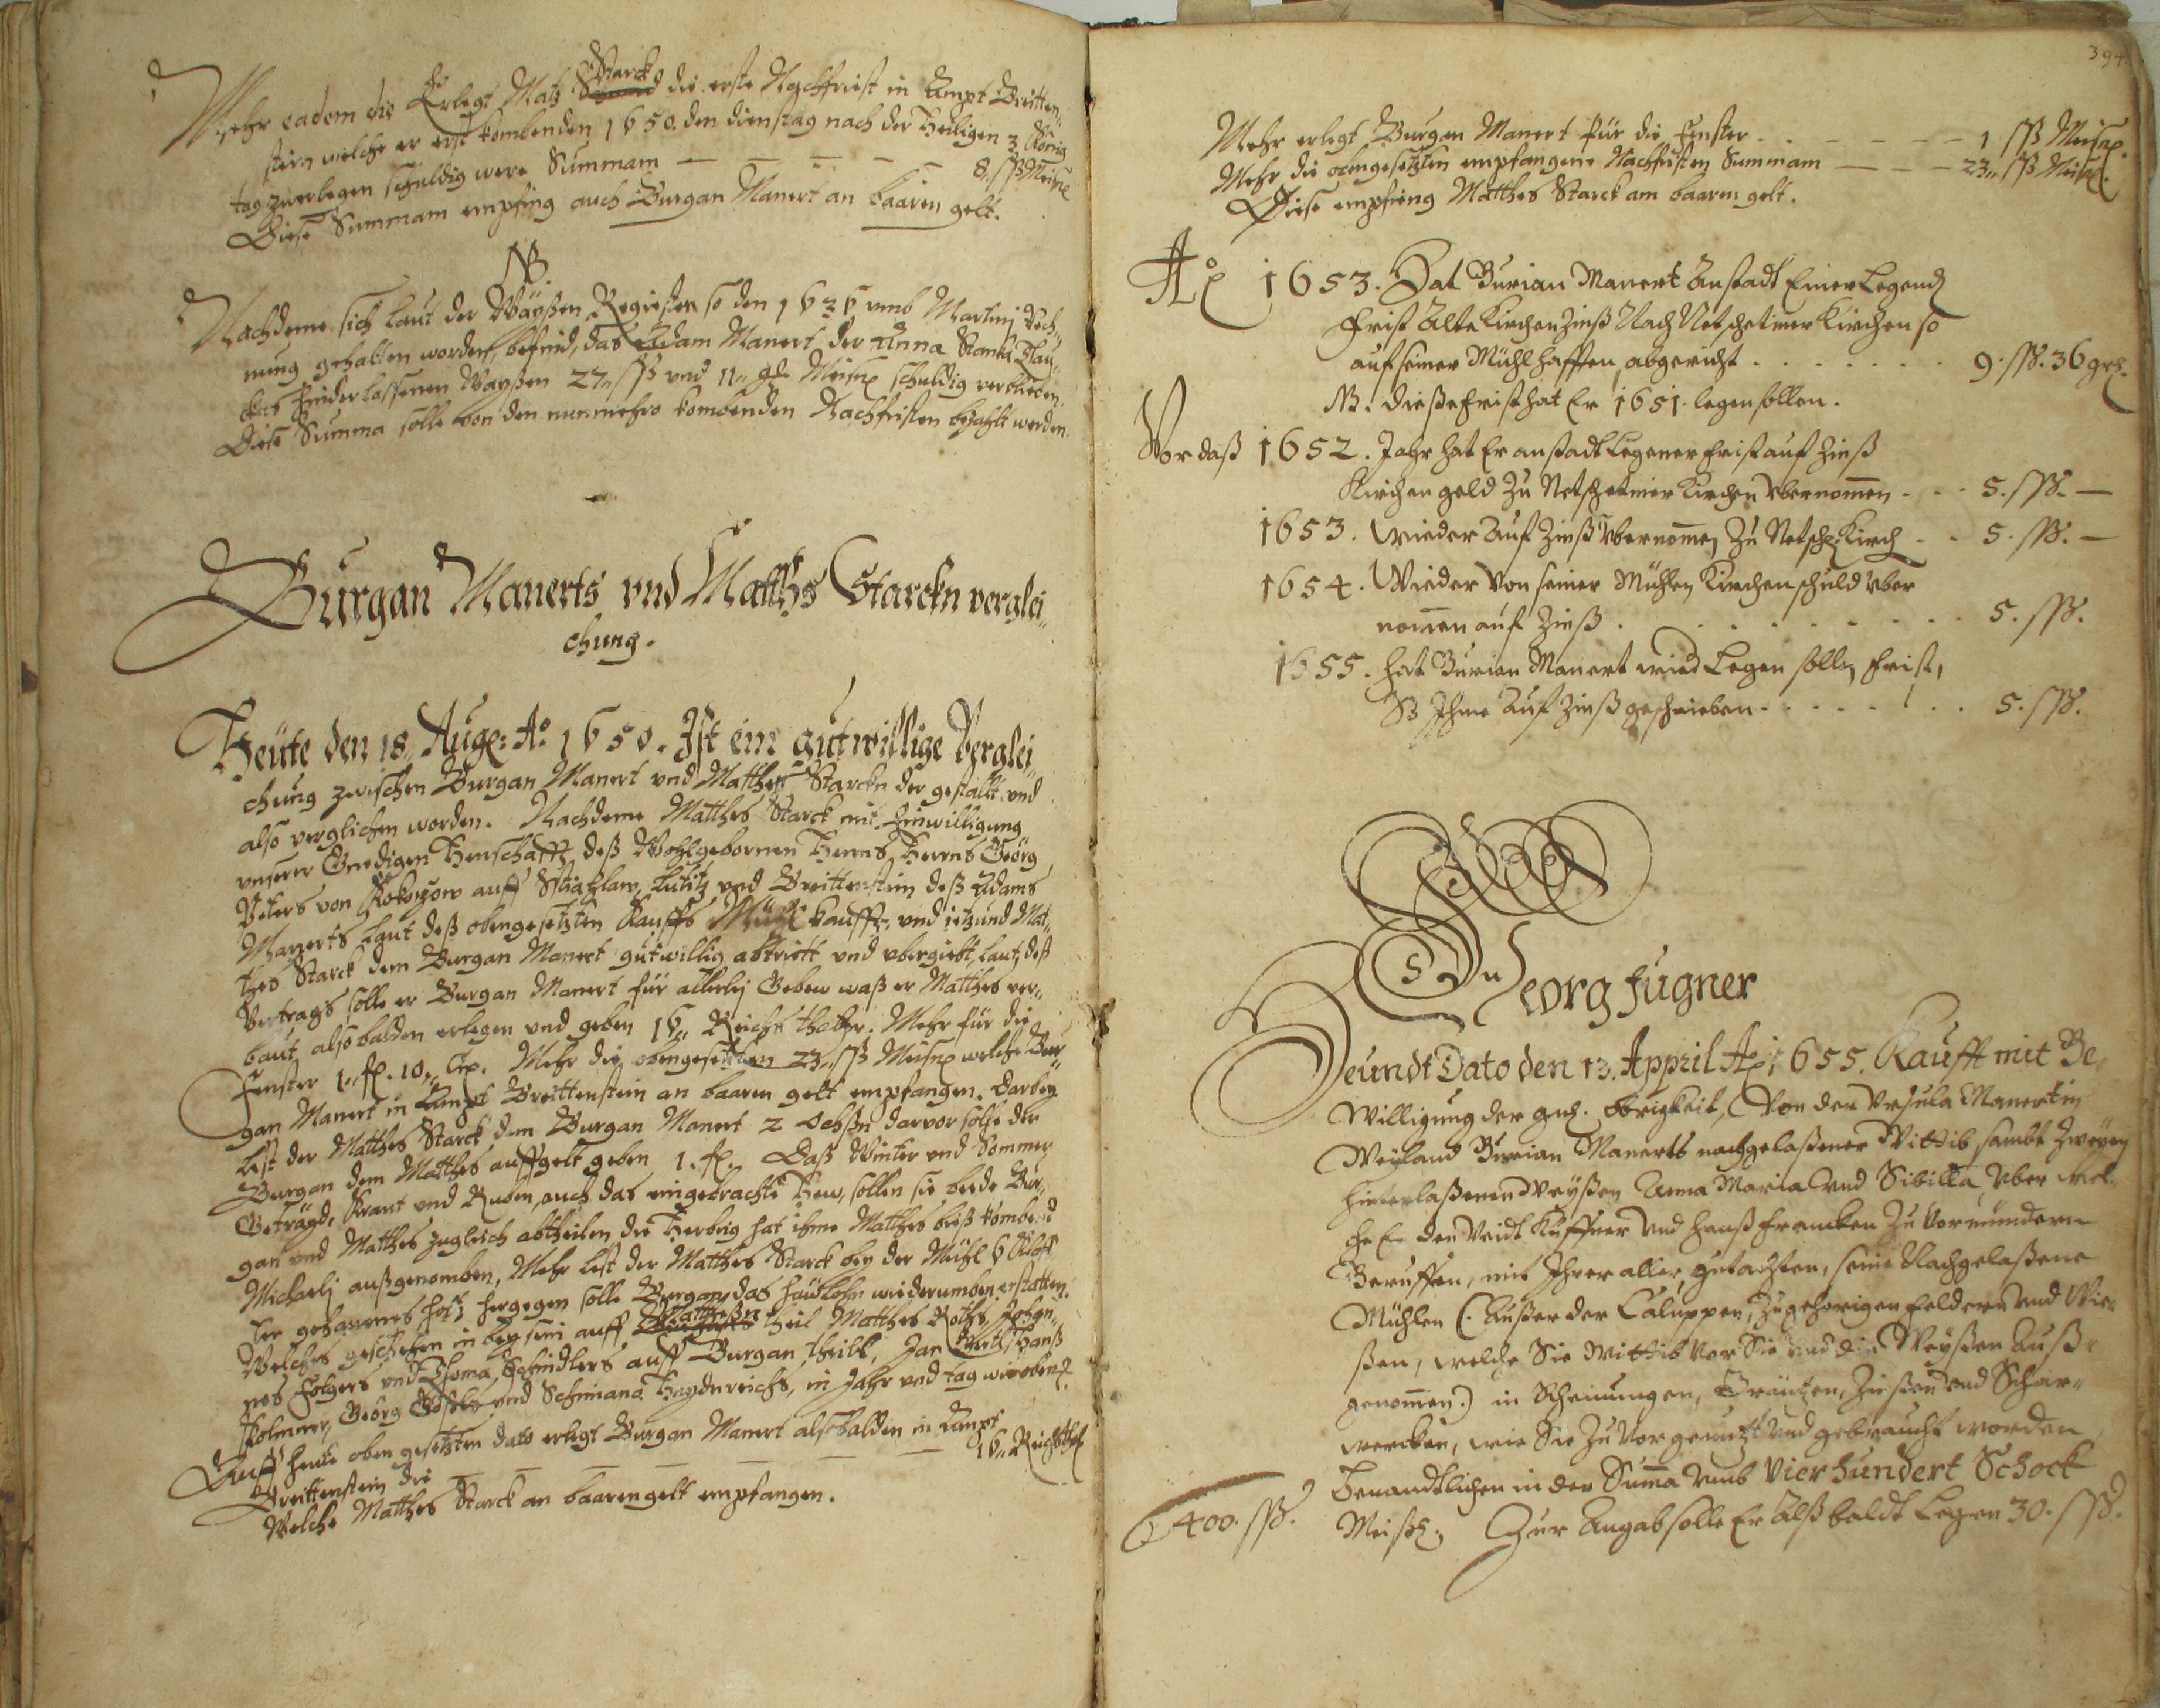 Mehr eadem die Erlegt Matz Starck die erste Nachfrist in Ampt Breitten-
stein welche er erst kombenden 1650. den dienstag nach der Heiligen 3 König
tag zuerlegen schuldig were Summam — — — — — 8„ ßß Meißn
Diese Summam empfing auch Burgan Manert an baaren gelt.
NB.
Nachdeme sich laut der Waÿßen Register so den 1636 vmb Martinj Rech-
nung gehalten worden, befind, das Adam Manert der Anna
hinderlassenen Wayßen 27„ ßß vnd 11„ gl Meißn schuldig verblieben.
Diese Summa solle von den nunmehro kombenden Nachfristen bezahlt werden.
Burgan Manerts vnd Matths Starckn verglei-
chung.
Heüte den 18„ Aug: Aº 1650. Ist ein gutwillige verglei-
chung zwischen Burgan Manert vnd Matthes Starckn der gestallt vnd
also verglichen worden. Nachdeme Matthes Starck mit Einwilligung
vnserer Gnedigen Herrschafft, deß Wohlgebornen Herrns Herrns Geörg
Peters von Kokorzow auff Stiažlaw, Lutitz vnd Breittenstein deß Adams
Manerts laut deß obengesetzten Kauffs Mühl kaufft, vnd ietzund Mat-
thes Starck dem Burgan Manert gutwillig abtritt vnd vbergiebt, laut deß
Vertrags solle er Burgan Manert für allerlej Gebew waß er Matthes ver-
baut, alsobalden erlegen vnd geben 16„ Reichs thaler. Mehr für die
Fenster 1„ fl. 10„ Mehr die obengesetzten 23„ ßß Meißn welche Bur-
gan Manert in Ampt Breittenstein an baaren gelt empfangen. Darbey
lest der Matthes Starck dem Burgan Manert 2 Ochßn darvor solle der
Burgan dem Matthes auffgelt geben 1. fl. Daß Winter vnd Sommer
Geträyd, Kraut vnd Ruben, auch das eingebrachte Hew, sollen sie beede Bur-
gan vnd Matthes zugleich abtheilen die Herbrig hat ihme Matthes biß kombend
Michaelj außgenomben, Mehr lest der Matthes Starck bey der Mühl 6 Klafft
ter gehawenes holz hergegen solle Burgan das hawlohn wiederumben erstatten.
Welches geschehen in beysein auff Matthesßn theil Matthes Roths, Johan-
nes Folgers vnd Thoma Schindlers auff Burgan theilß, Jan Hanß
Kolmerr, Geörg vnd Schimana Haydnreichs, in Jahr vnd tag wie oben.
Auff heute oben gesetzten dato erlegt Burgan Manert alsobalden in Ampt
Breittenstein die — — — — — — 16„ Reichsthl
Welche Matthes Starck an baarengelt empfangen.
394
Mehr erlegt Burgan Manert für die Fenster - - - - - 1 ßß Meißn.
Mehr die obengesetzten empfangene Nachfristen Summam — — — 23„ ßß Meißn.
Diese empfieng Matthes Starck am baaren gelt.
Aº 1653. Hat Burian Manert Anstadt Einer Legend
Frist Alte Kirchenzinß Nach Netschetiner Kirchen so
auf seiner Mühl hafften, abgericht . . . . . . . 9. ßß. 36 grl.
NB. Diese Frist hat Er 1651. legen sollen.
Vor daß 1652. Jahr hat Er anstadt Legener frist auf Zinß
Kirchen geld Zu Netschetiner Kirchen vbernomen - - - 5. ßß. —
1653. Wieder auf Zinß vbernomen Zu Netsch: Kirch - - 5. ßß. —
1654. Wieder Von seiner Mühlen Kirchen schuld vber
nomen auf Zinß . . . . . . . . 5. ßß.
1655. hat Burian Manert wied Legen solln Frist,
So Ihme auf Zinß geschrieben . . . . . . . 5. ßß.
Georg Fugner
Heundt Dato den 13. Appril Aº 1655. Kaufft mit Be-
Willigung der gnd. Obrigkeit, Von der Vrsula Manertin
Weyland Burian Manerts nachgelaßener Wittib, sambt Zweyen
hinterlaßenen Weyßen Anna Maria vnd Sibilla, Vber wel-
che Er den Veidt Küffner vnd Hanß Francken Zu Vormündern
Beruffen, mit Ihrer aller gutachten, seine Nachgelaßene
Mühlen (: Außer der Caluppen, Zugehörigen feldern vnd Wie-
ßen, welche Sie Wittib Vor Sie vnd die Weyßen Auß-
genomen.) in Rheinungen, Gräntzen, Zinßen vnd Schar-
wercken, wie Sie Zu Vor genutzt vnd gebraucht worden
Benandtlichen in der Suma vmb Vierhundert Schock
400. ßß. Meißn. Zur Angab solle Er Alß baldt Legen 30. ßß.